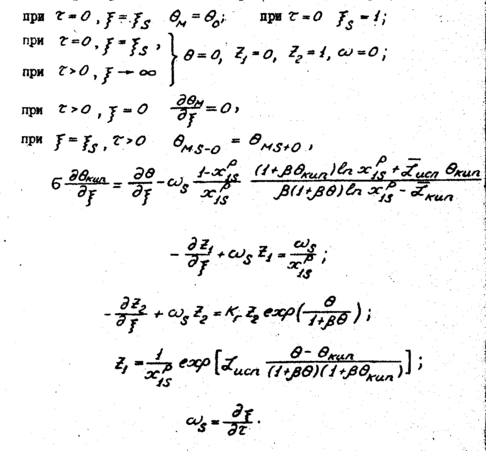 при τ = 0, ξ = ξ_S θ_м = θ_0; при τ = 0 ξ_S = 1;
при τ = 0, ξ = ξ_S,
при τ > 0, ξ → ∞ } θ = 0, Z_1 = 0, Z_2 = 1, ω = 0;
при τ > 0, ξ = 0 ∂θ_м/∂ξ = 0,
при ξ = ξ_S, τ > 0 θ_{мS-0} = θ_{мS+0},
б ∂θ_кип/∂ξ = ∂θ/∂ξ - ω_S (1-x_{1S}^p)/x_{1S}^p ((1+βθ_кип) ln x_{1S}^p + L̄_исп θ_кип)/(β(1+βθ) ln x_{1S}^p - L̄_кип)
-∂Z_1/∂ξ + ω_S Z_1 = ω_S/x_{1S}^p;
-∂Z_2/∂ξ + ω_S Z_2 = K_r Z_2 exp(θ/(1+βθ));
Z_1 = 1/x_{1S}^p exp[L_исп (θ - θ_кип)/((1+βθ)(1+βθ_кип))];
ω_S = ∂ξ/∂τ.